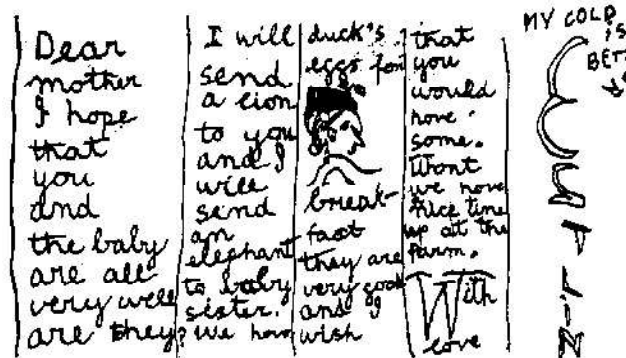 Dear
mother
I hope
that
you
and
the baby
are all
very well
are they?
I will
send
a lion
to you
and I
will
send
an
elephant
to baby
sister.
We have
duck's
eggs for
break-
fast
they are
very good
and I
wish
that
you
would
have
some.
Wont
we have
nice time
up at the
farm.
With
love
MY COLD
IS
BET